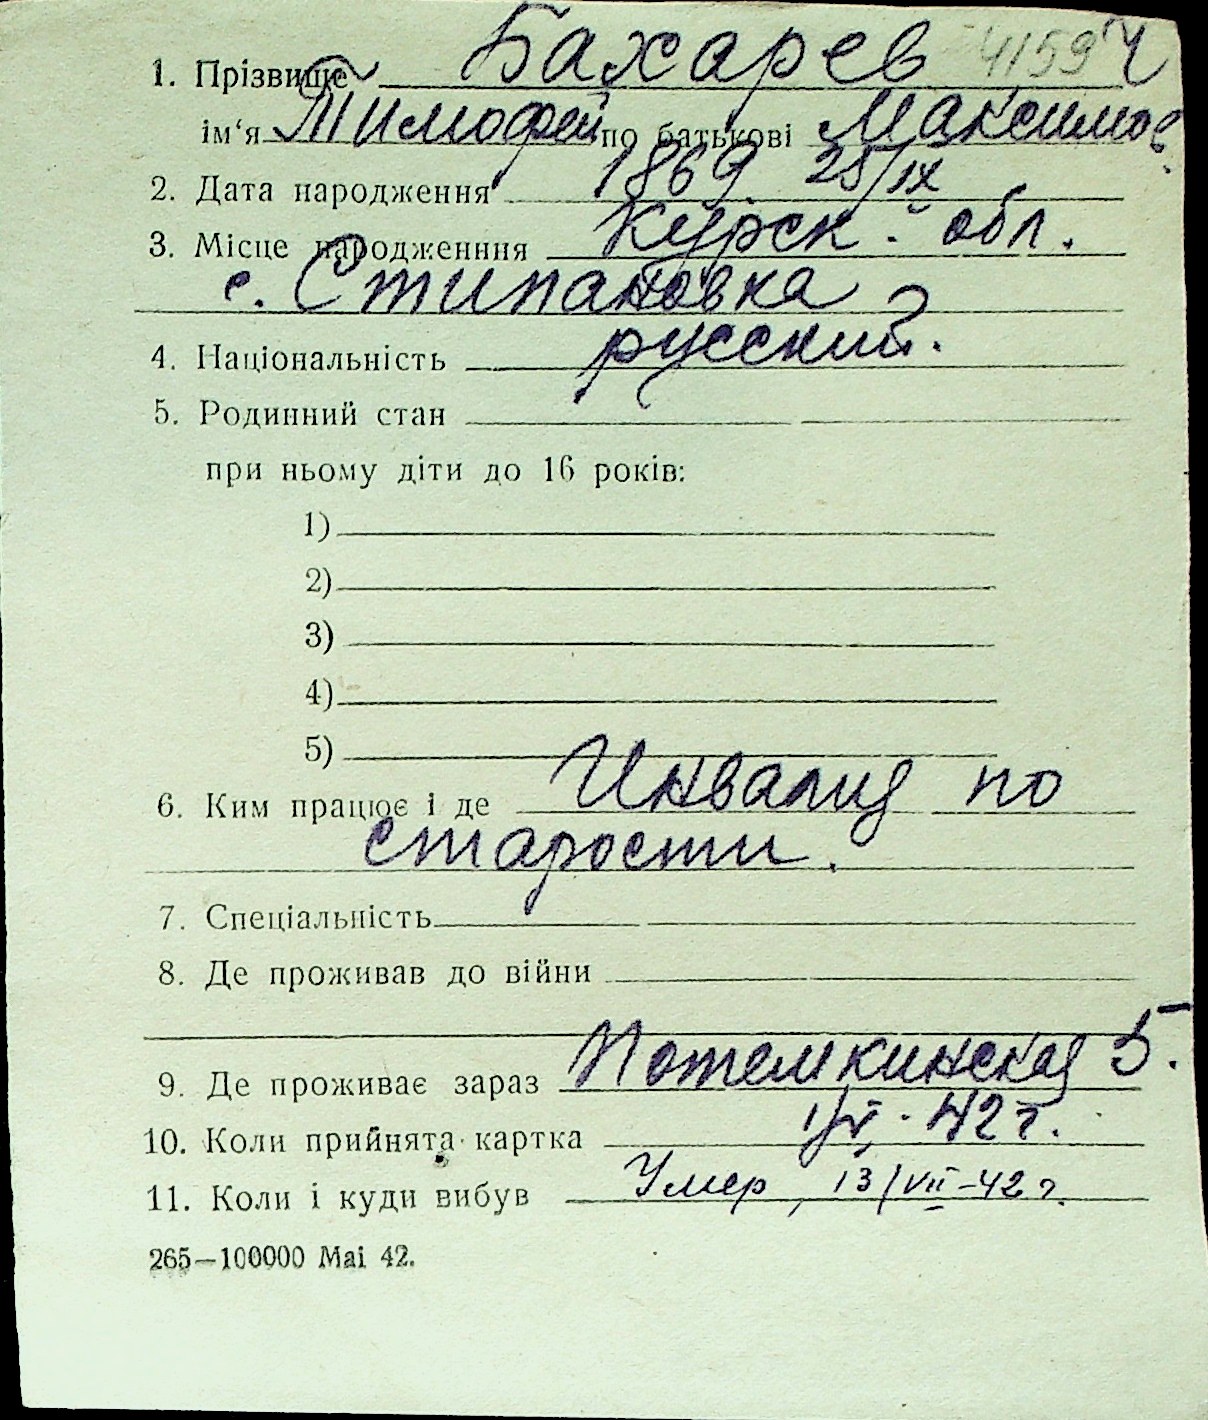 1. Прізвище Бахарев 4159 ч
ім‘я Тимофей по батькові Максимов.
2. Дата народження 1869 25/IX
3. Місце народженння Курск. обл.
с. Стипановка
4. Національність русский.
5. Родинний стан
при ньому діти до 16 років:
1)
2)
3)
4)
5)
6. Ким працює і де Инвалид по
старости.
7. Спеціальність
8. Де проживав до війни
9. Де проживає зараз Потемкинская 5.
10. Коли прийнята картка 42 г.
11. Коли і куди вибув Умер, 13/VII-42 г.
265—100000 Mai 42.